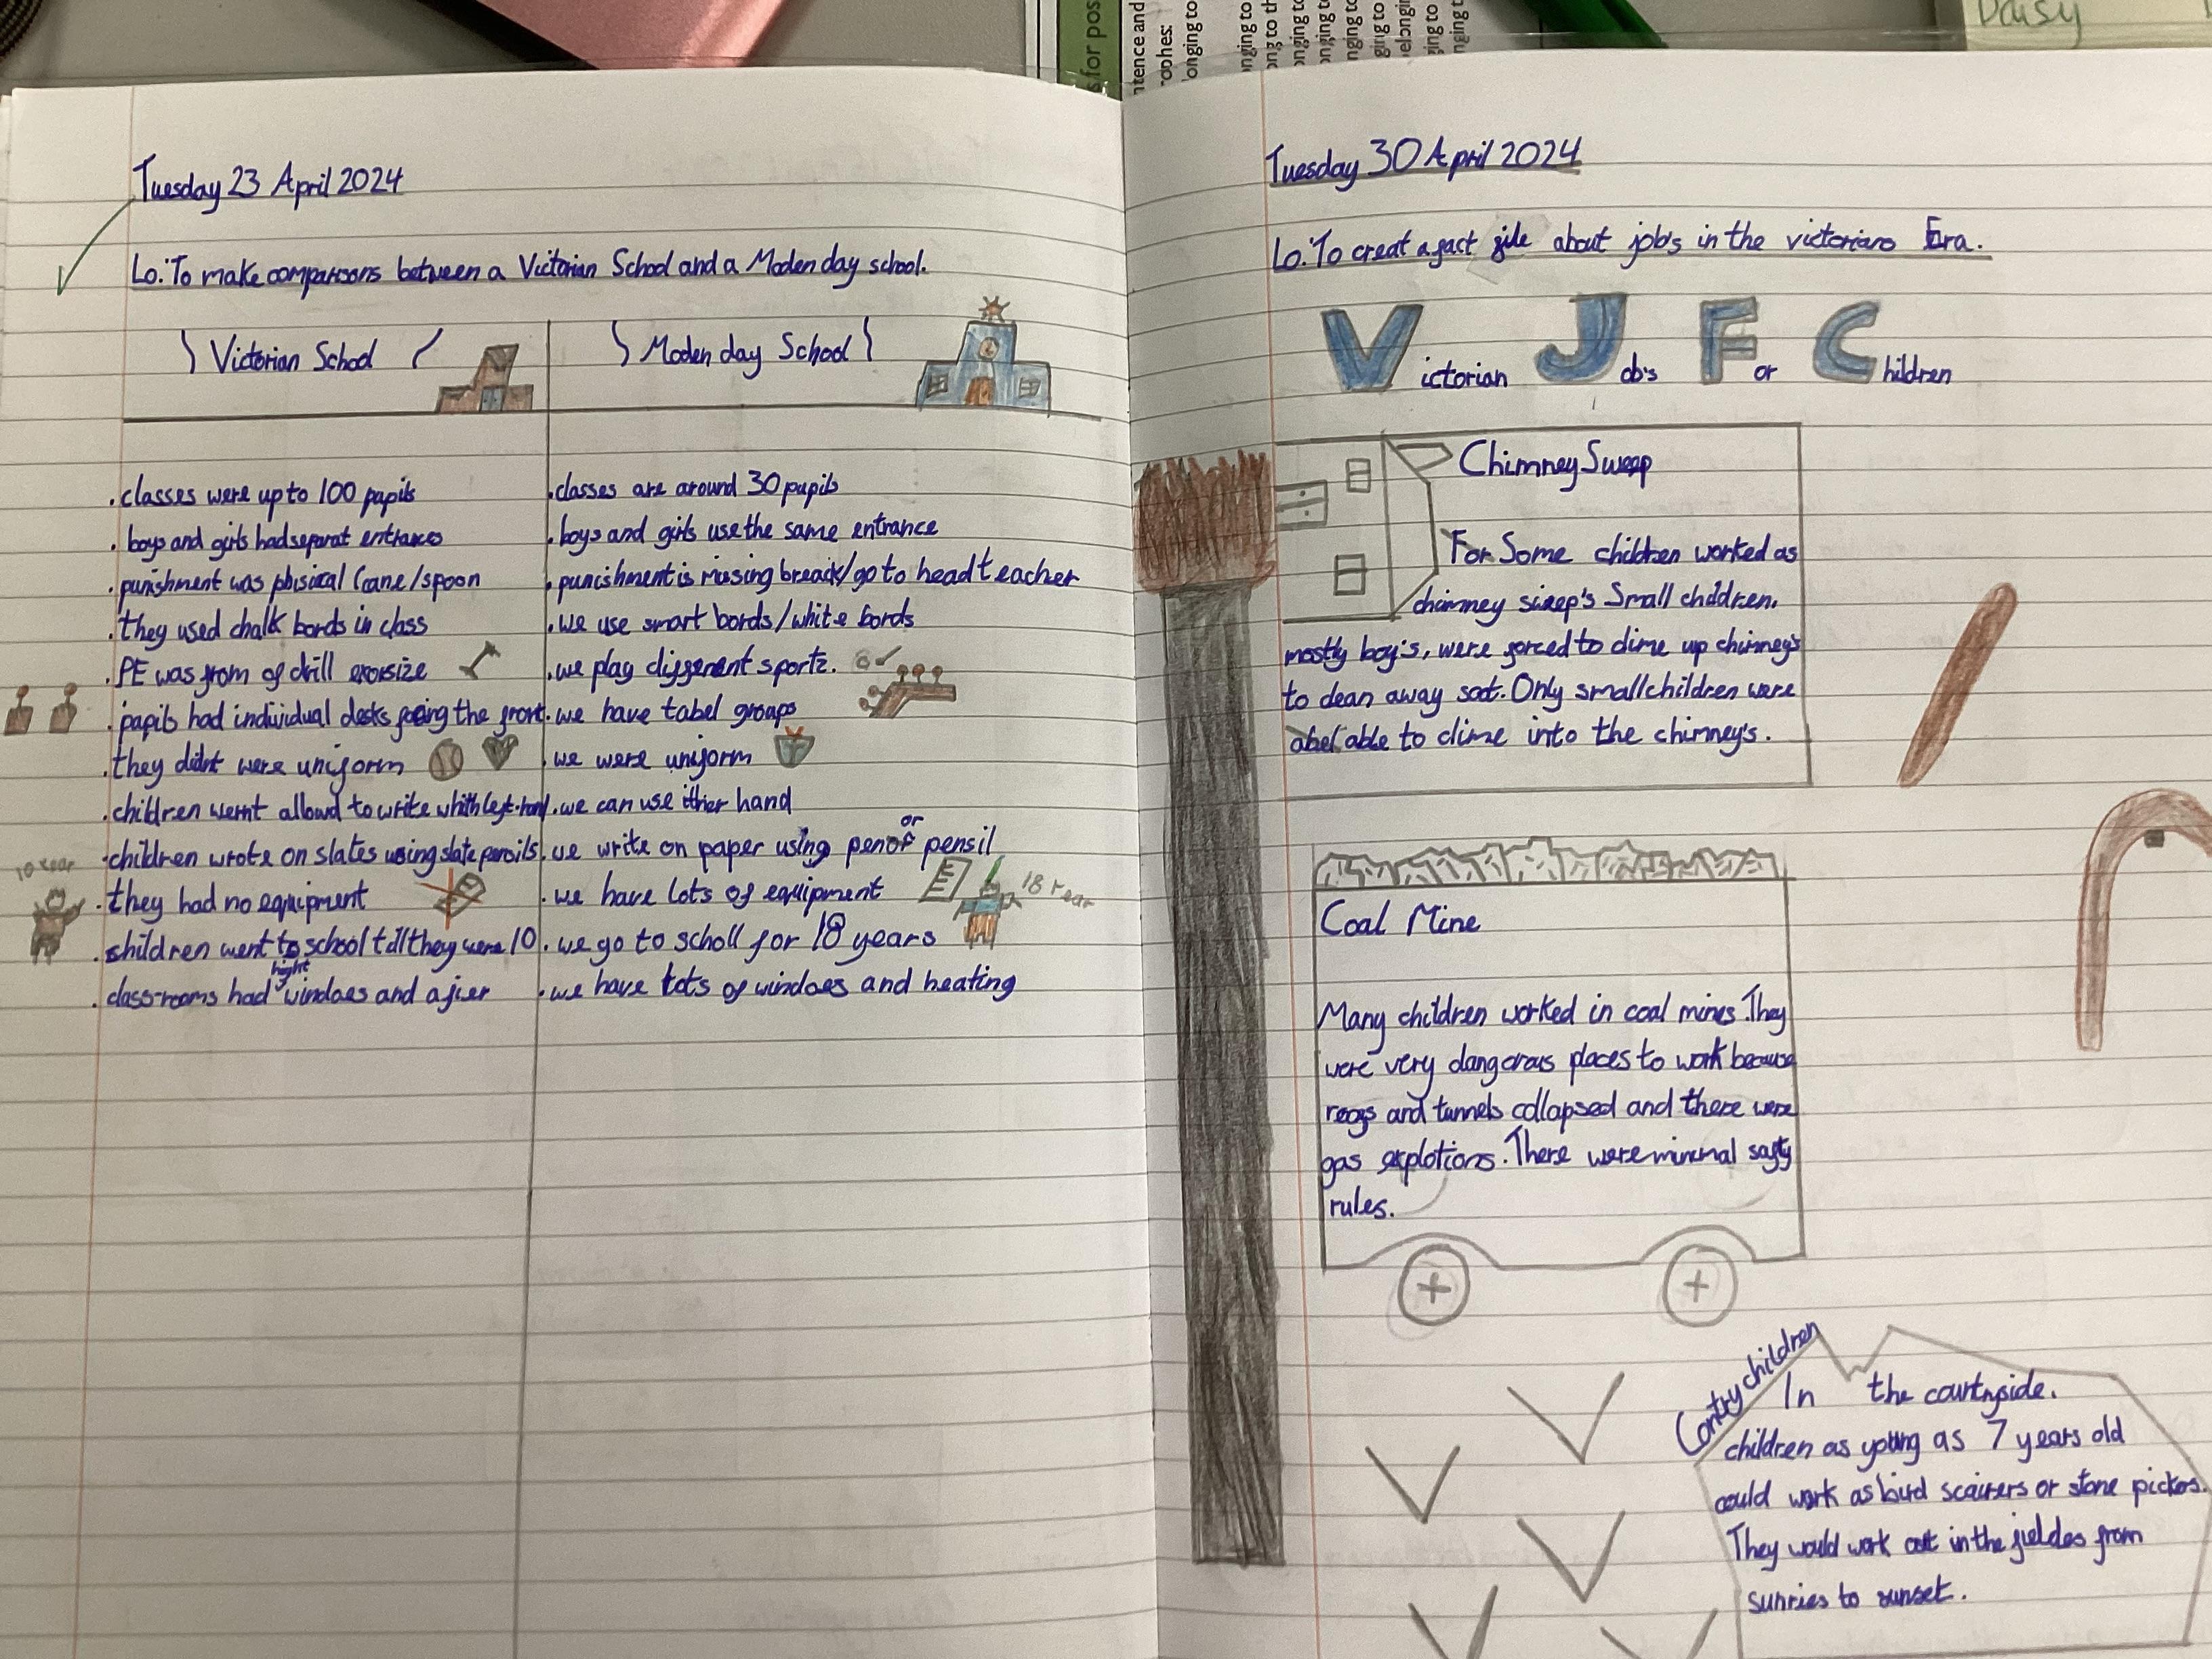 for pos
tence and
ophes:
onging to
Daisy
Tuesday 23 April 2024
Lo: To make comparisons between a Victorian School and a Moden day school.
Victorian School
. classes were up to 100 pupils
. boys and girls had separat entrances
. punishment was phisical Cane/spoon
. they used chalk bords in class
. PE was from of drill exorsize
. pupils had individual desks facing the front
. they didnt were uniform
. children wernt allowd to write whith left-hand
. children wrote on slates using slate pencils
10 year
. they had no equipment
. children went to school till they were 10
. class-rooms had hight windoes and a fier
Moden day School
. classes are around 30 pupils
. boys and girls use the same entrance
. punishment is missing breack/go to head teacher
. we use smart bords/white bords
. we play different sportz.
. we have tabel groups
. we were uniform
. we can use ither hand
. we write on paper using pen or pensil
. we have lots of equipment
18 year
. we go to scholl for 18 years
. we have lots of windoes and heating
Tuesday 30 April 2024
Lo: To creat a fact file about job's in the victorians Era.
Victorian Job's For Children
Chimney Sweep
For Some children worked as
chimney sweep's Small children,
mostly boy's, were forced to clime up chimney's
to clean away soot. Only small children were
abel able to clime into the chimney's.
Coal Mine
Many children worked in coal mines. They
were very dangerous places to work because
roofs and tunnels collapsed and there were
gas explotions. There were minimal safty
rules.
Contry children
In the countryside.
children as young as 7 years old
could work as bird scairers or stone pickers.
They would work out in the fieldes from
sunries to sunset.